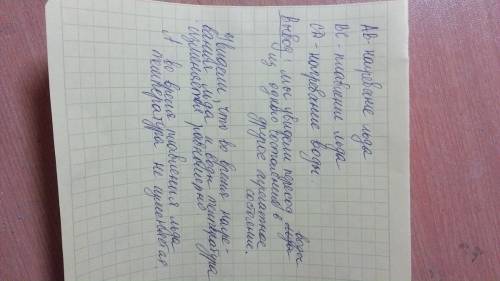 AB - нагревание льда
BC - плавление льда
CD - нагревание воды.
Вывод: мы увидели переход воды
из одного состояния в
другое агрегатное
состояние.
Увидели, что во время нагре-
вания льда и воды температура
изменяется равномерно
А во время плавления льда
температура не изменяется.